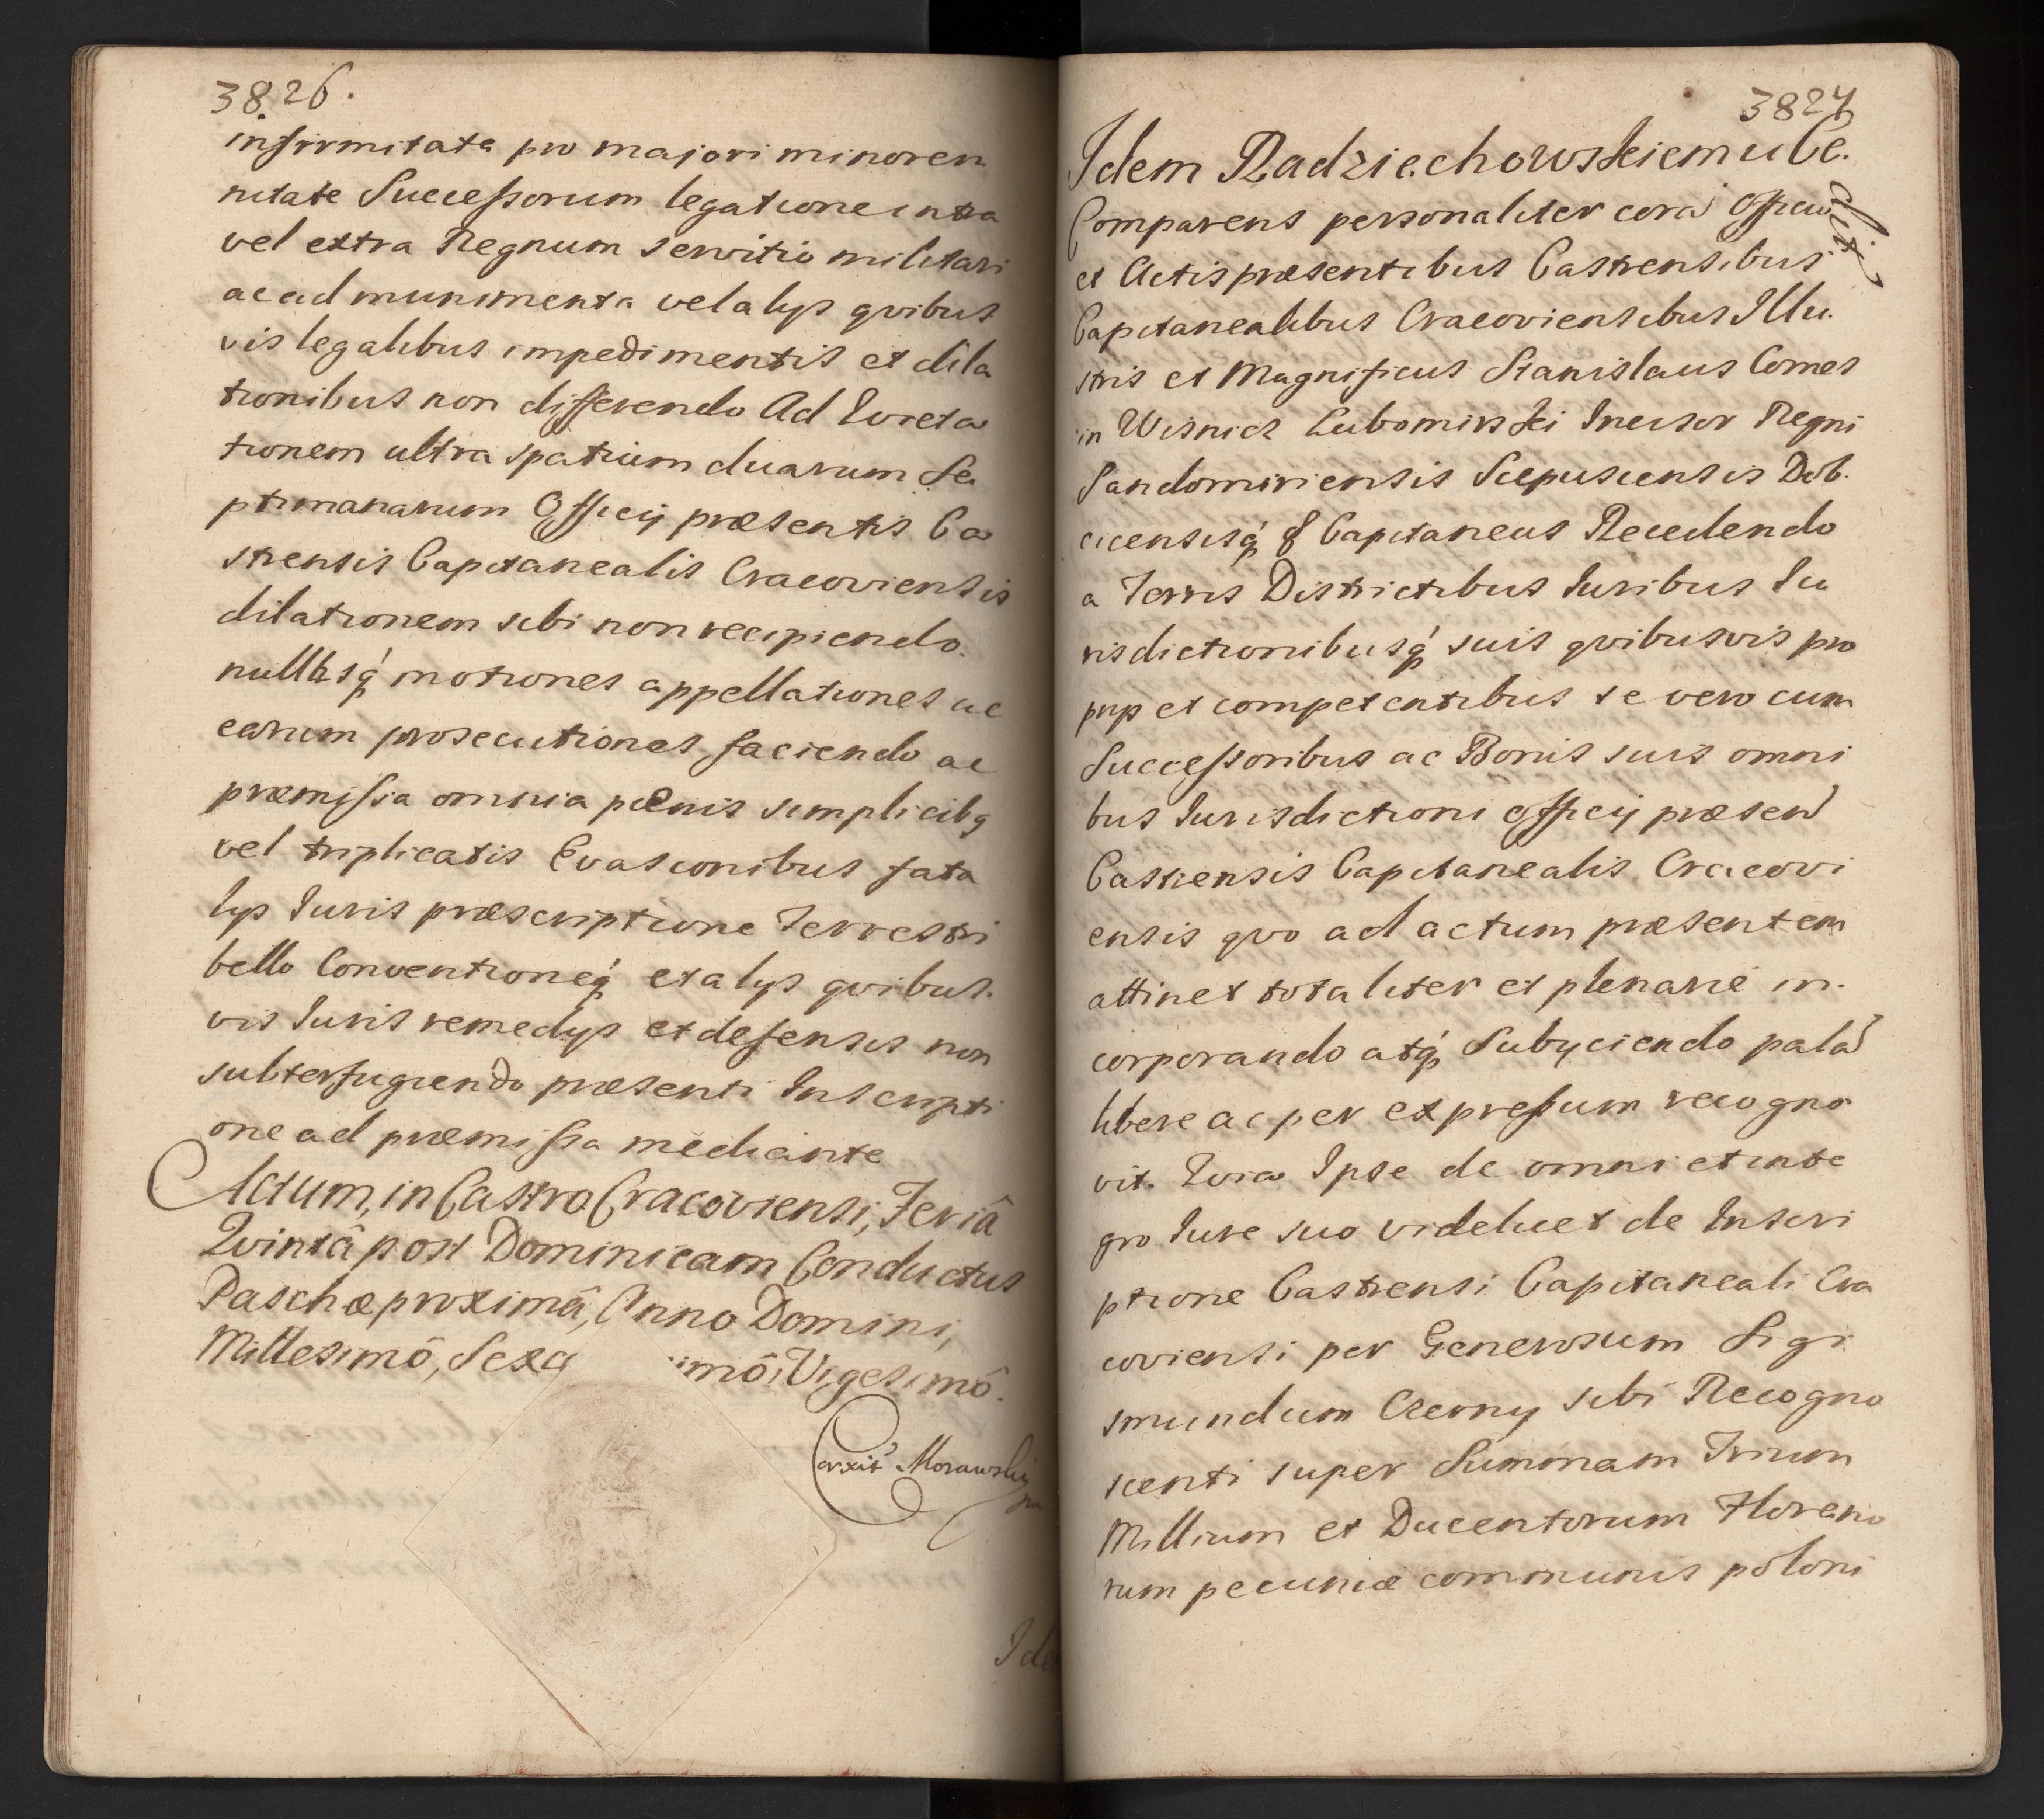 3826.
infirmitate pro majori minoren
nitate Successorum legatione intra
vel extra Regnum servitio militari
ac ad munimenta vel alys qvibus
vis legalibus impedimentis et dila
tionibus non differendo Ad Evicta
tionem ultra spatium duarum Se
ptimanarum Officij præsentis Ca
strensis Capitanealis Cracoviensis
dilationem sibi non recipiendo.
nullasq́ motiones appellationes ac
earum prosecutiones faciendo ac
præmissa omnia pœnis simplicibq
vel triplicatis Evasionibus fata
lys Iuris præscriptione Terrestri
bello Conventioneq́ et alys qvibus
vis Iuris remedys et defensis non
subterfugiendo præsenti Inscripti
one ad præmissa mediante
Actum, in Castro Cracoviensi, Feriâ
Qvintâ post Dominicam Conductus
Paschæ proximâ, Anno Domini,
Millesimô, Sexc imô, Vigesimô.
Morawsky
Ide
3827
Idem Radziechowskiemu Ce.
dit
Comparens personaliter corã Officio
et Actis præsentibus Castrensibus
Capitanealibus Cracoviensibus Illu.
stris et Magnificus Stanislaus Comes
in Wisnicz Lubomirski Incisor Regni
Sandomiriensis Scepusiensis Dob.
cicensisq́ & Capitaneus Recedendo
a Terris Districtibus Iuribus Iu
risdictionibusq́ suis qvibusvis pro
prys et competentibus se vero cum
Successoribus ac Bonis suis omni
bus Iurisdictioni Officij præsen
Castrensis Capitanealis Cracovi
ensis qvo ad actum præsentem
attinet totaliter et plenarie in.
corporando atq́ Subyciendo palã
libere ac per expressum recogno
vit. Qvia Ipse de omni et inte
gro Iure suo videlicet de Inscri
ptione Castrensi Capitaneali Cra
coviensi per Generosum Sigi
smundum Czerny sibi Recogno
scenti super Summam Trium
Millium et Ducentorum Floreno
rum pecuniæ communis poloni